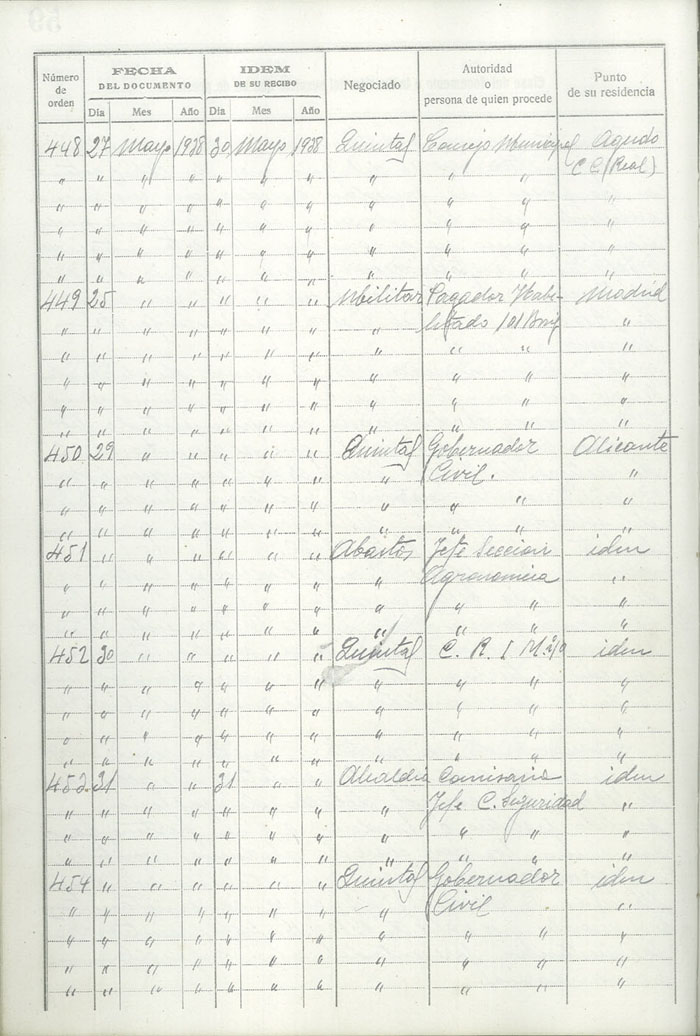 Número de orden | FECHA DEL DOCUMENTO | IDEM DE SU RECIBO | Negociado | Autoridad o persona de quien procede | Punto de su residencia
Dia | Mes | Año | Dia | Mes | Año
448 27 Mayo 1938 30 Mayo 1938 Quintas Consejo Municipal Agudo
" " " " " " " " " " C. (Real)
" " " " " " " " " " "
" " " " " " " " " "
" " " " " " " " " " "
" " " " " " " " " " "
449 25 " " " " " Militar Pagador Habi-
Madrid
" " " " " " " " litado 101 Brig "
" " " " " " " " " " "
" " " " " " " " " " "
" " " " " " " " " " "
" " " " " " " " " " "
450 29 " " " " " Quintas Gobernador Alicante
" " " " " " " " Civil. "
" " " " " " " " " " "
" " " " " " " " " " "
451 " " " " " " Abastos Jefe Seccion idem
" " " " " " " " Agronomica "
" " " " " " " " " " "
" " " " " " " " " " "
452 30 " " " " " Quintas C. R. I M. nº idem
" " " " " " " " " " "
" " " " " " " " " " "
" " " " " " " " " " "
" " " " " " " " " " "
453 31 " " 31 " " Alcaldia Comisario idem
" " " " " " " " Jefe C. Seguridad "
" " " " " " " " " " "
" " " " " " " " " " "
454 " " " " " " Quintas Gobernador idem
" " " " " " " " Civil "
" " " " " " " " " " "
" " " " " " " " " " "
" " " " " " " " " " "